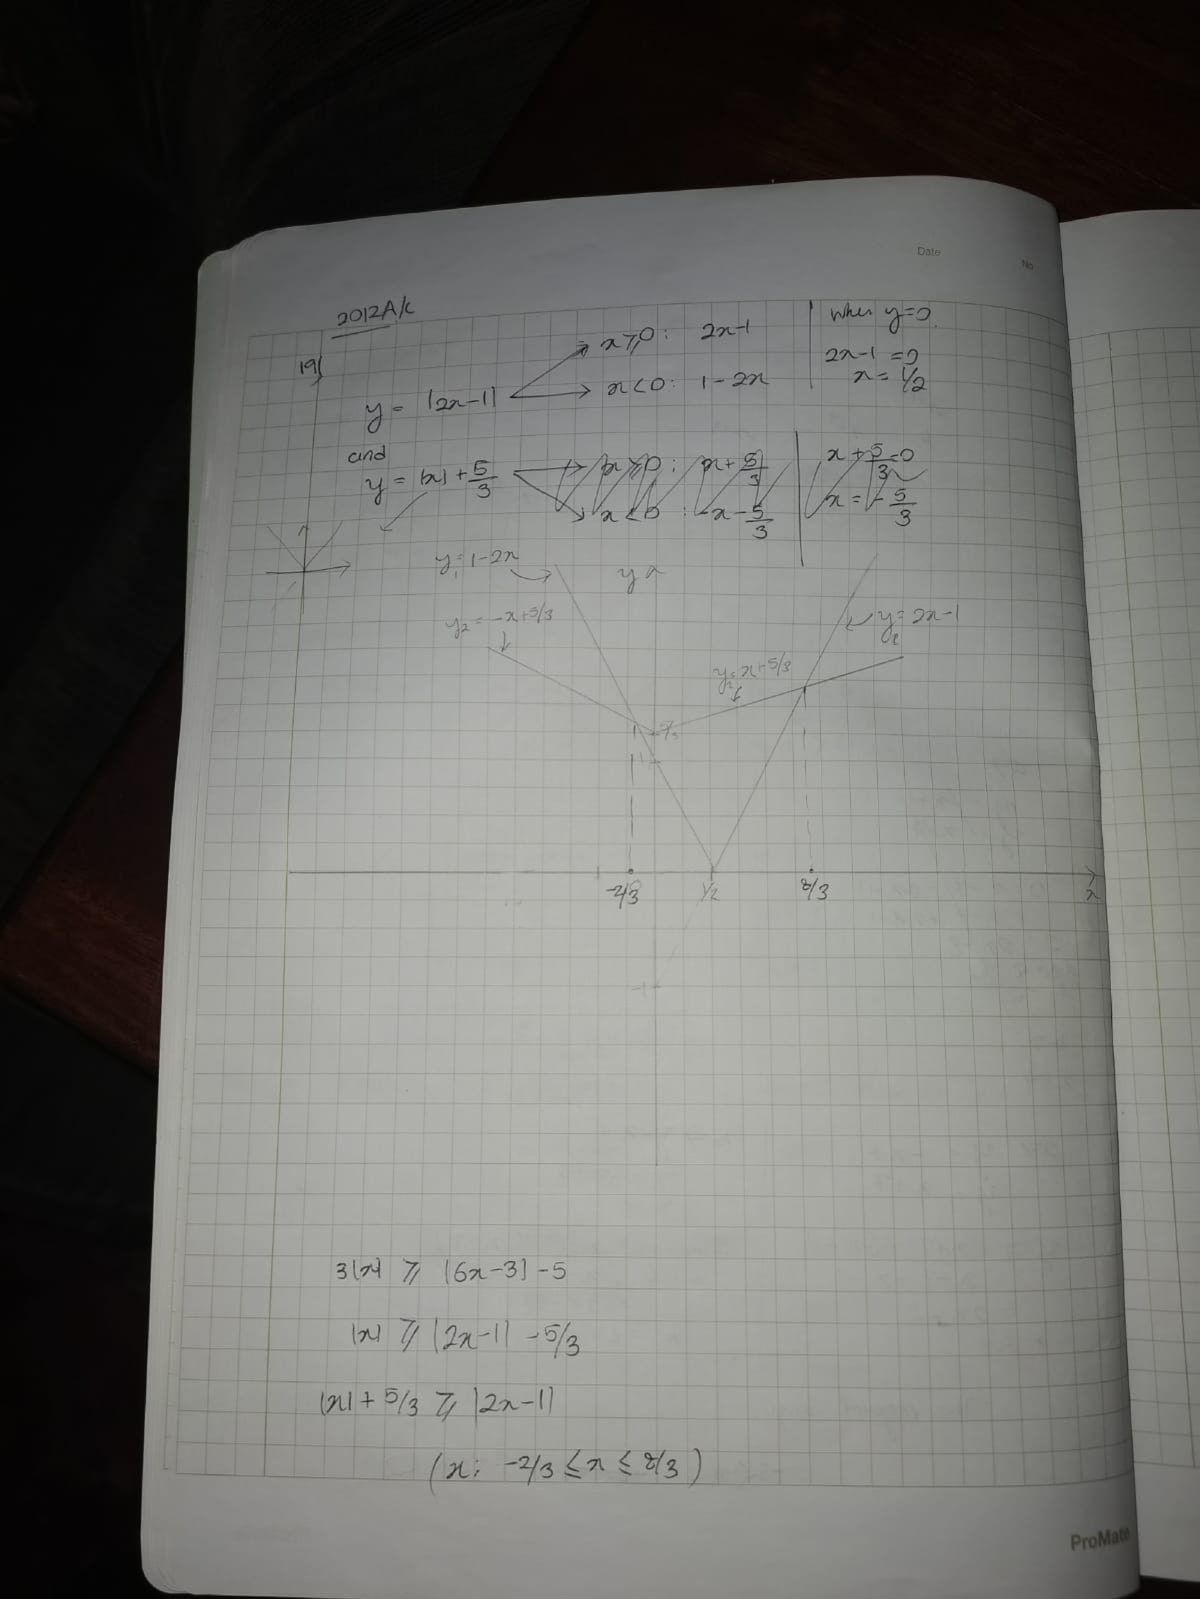 Date
No
2012A/L
19)
y = |2x-1|
x ⩾ 0 : 2x-1
x < 0 : 1-2x
when y=0.
2x-1 = 0
x = 1/2
and
y = |x| + 5/3
x ⩾ 0 : x + 5/3
x < 0 : -x - 5/3
x + 5/3 = 0
x = -5/3
y₁ = 1-2x
y
y₂ = -x+5/3
y₁ = 2x-1
y₂ = x+5/3
5/3
1
-2/3
1/2
8/3
x
-1
3|x| ⩾ |6x-3| - 5
|x| ⩾ |2x-1| - 5/3
|x| + 5/3 ⩾ |2x-1|
(x; -2/3 ≤ x ≤ 8/3)
ProMate